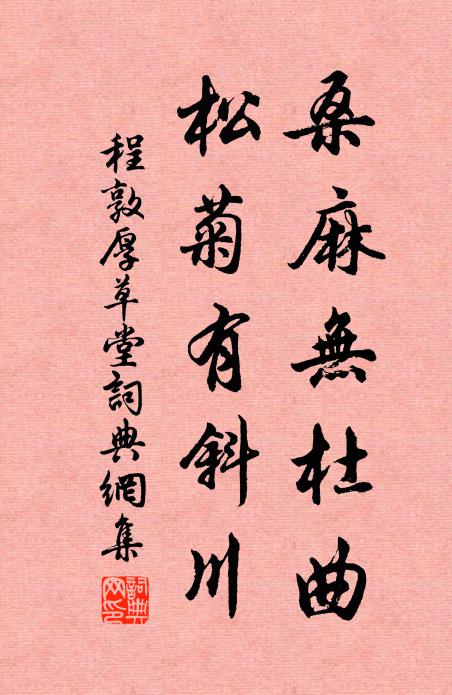 桑麻無杜曲
松菊有斜川
程敦厚草堂詞典網集
詞典網印